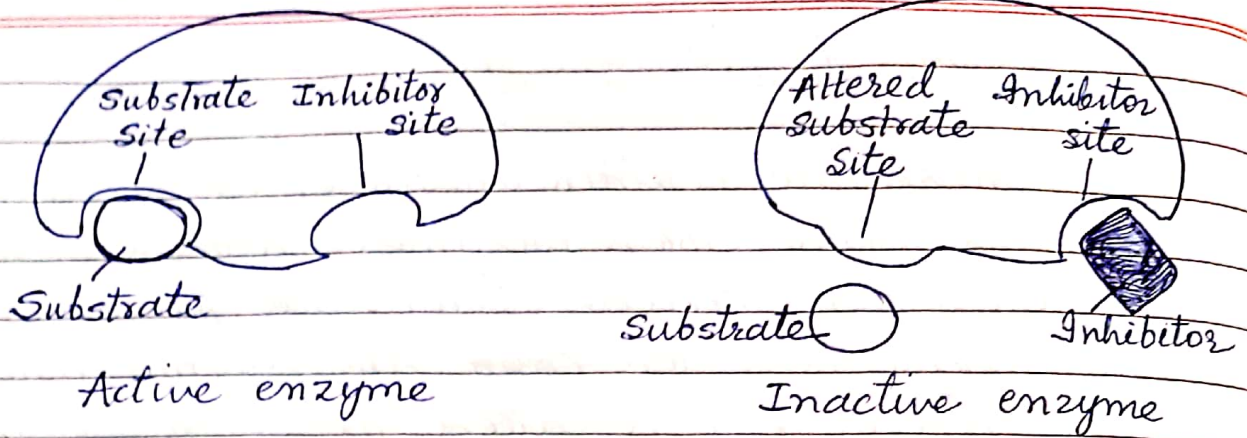 Substrate
site
Inhibitor
site
Substrate
Active enzyme
Altered
substrate
Site
Inhibitor
site
Substrate
Inhibitor
Inactive enzyme